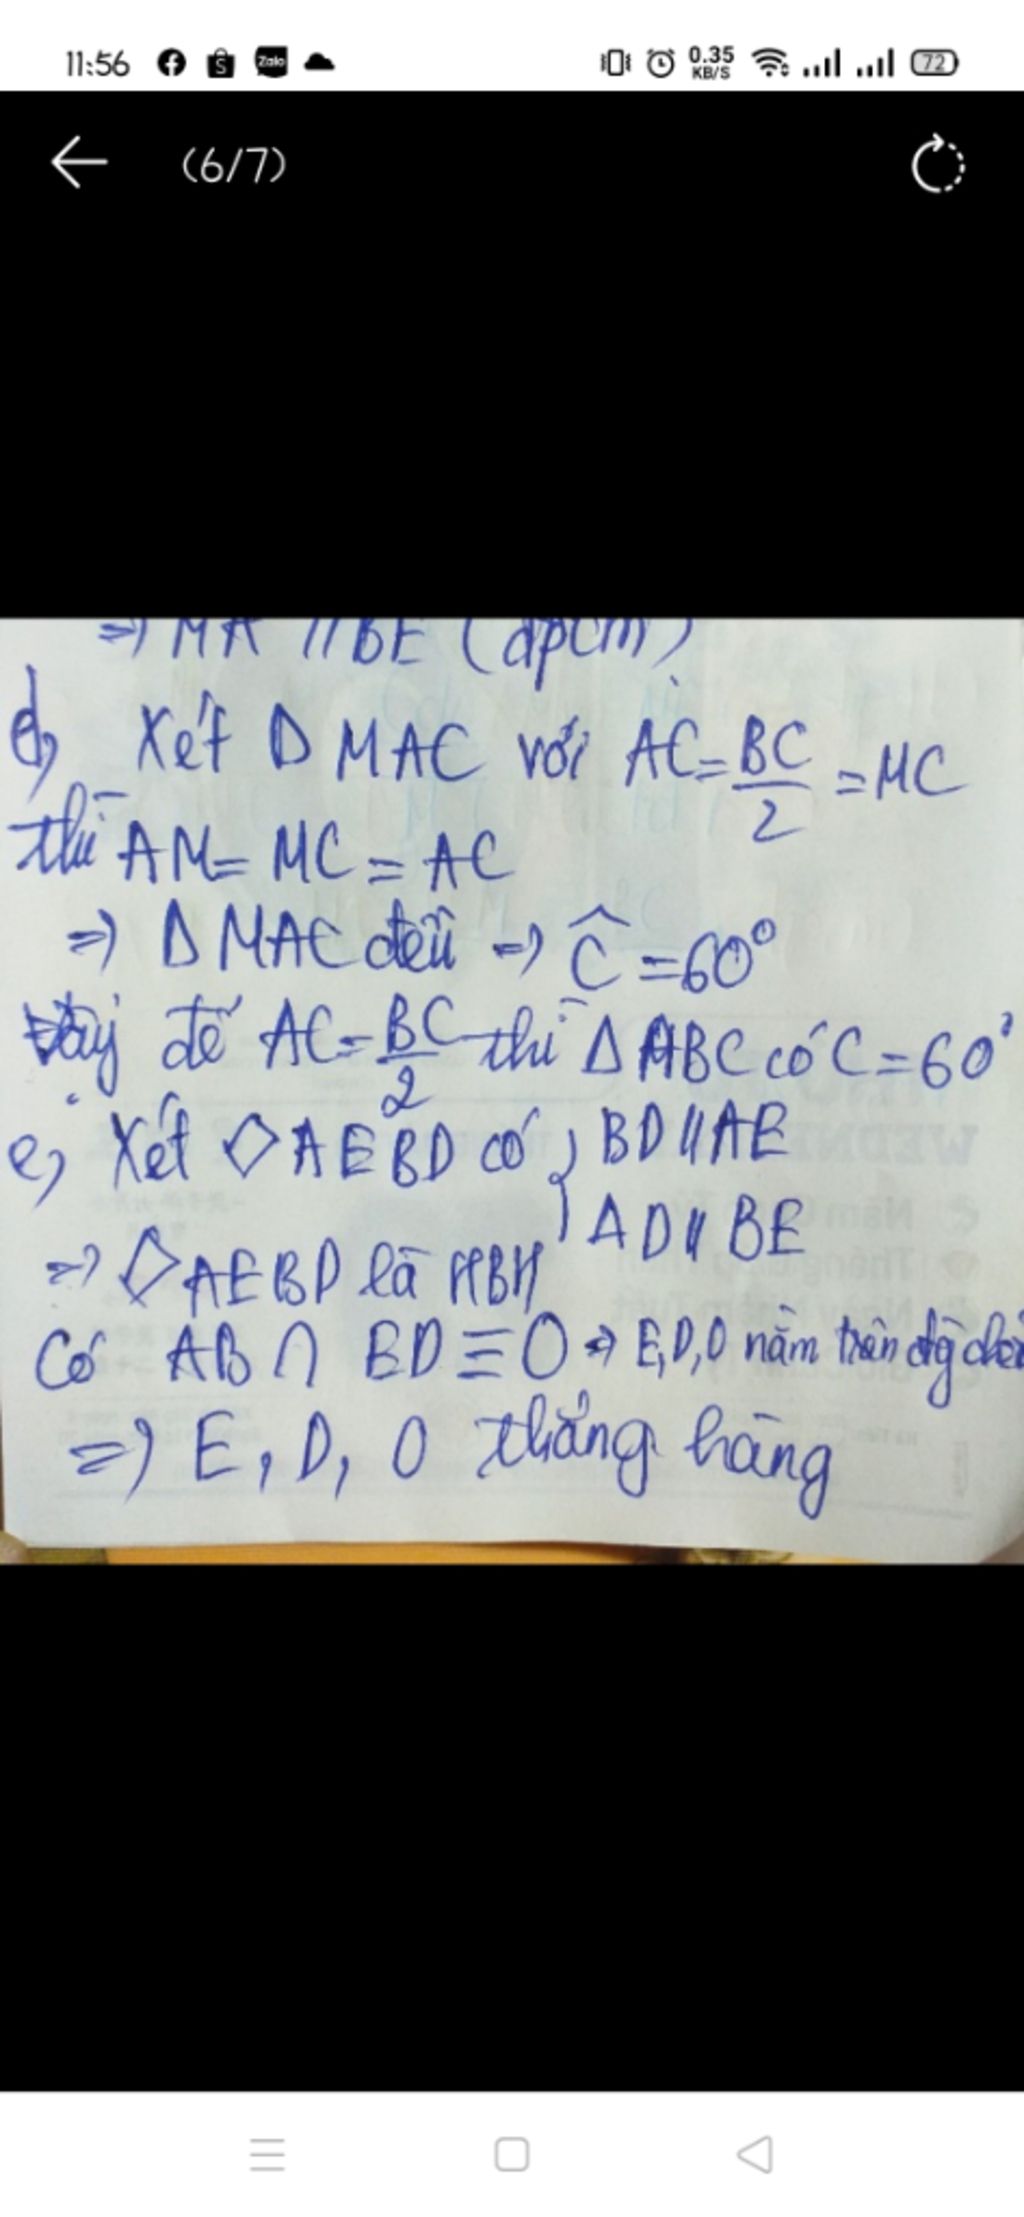 11:56 Zalo 0.35 KB/S 72
(6/7)
=> MA // BE (đpcm)
d, Xét Δ MAC với AC = BC/2 = MC
thì AM = MC = AC
=> Δ MAC đều => Ĉ = 60°
Vậy để AC = BC/2 thì Δ ABC có C = 60°
e, Xét ◇ AEBD có { BD // AE
AD // BE
=> ◇ AEBD là HBH
Có AB ∩ ED ≡ O => E, D, O nằm trên đg chéo
=> E, D, O thẳng hàng